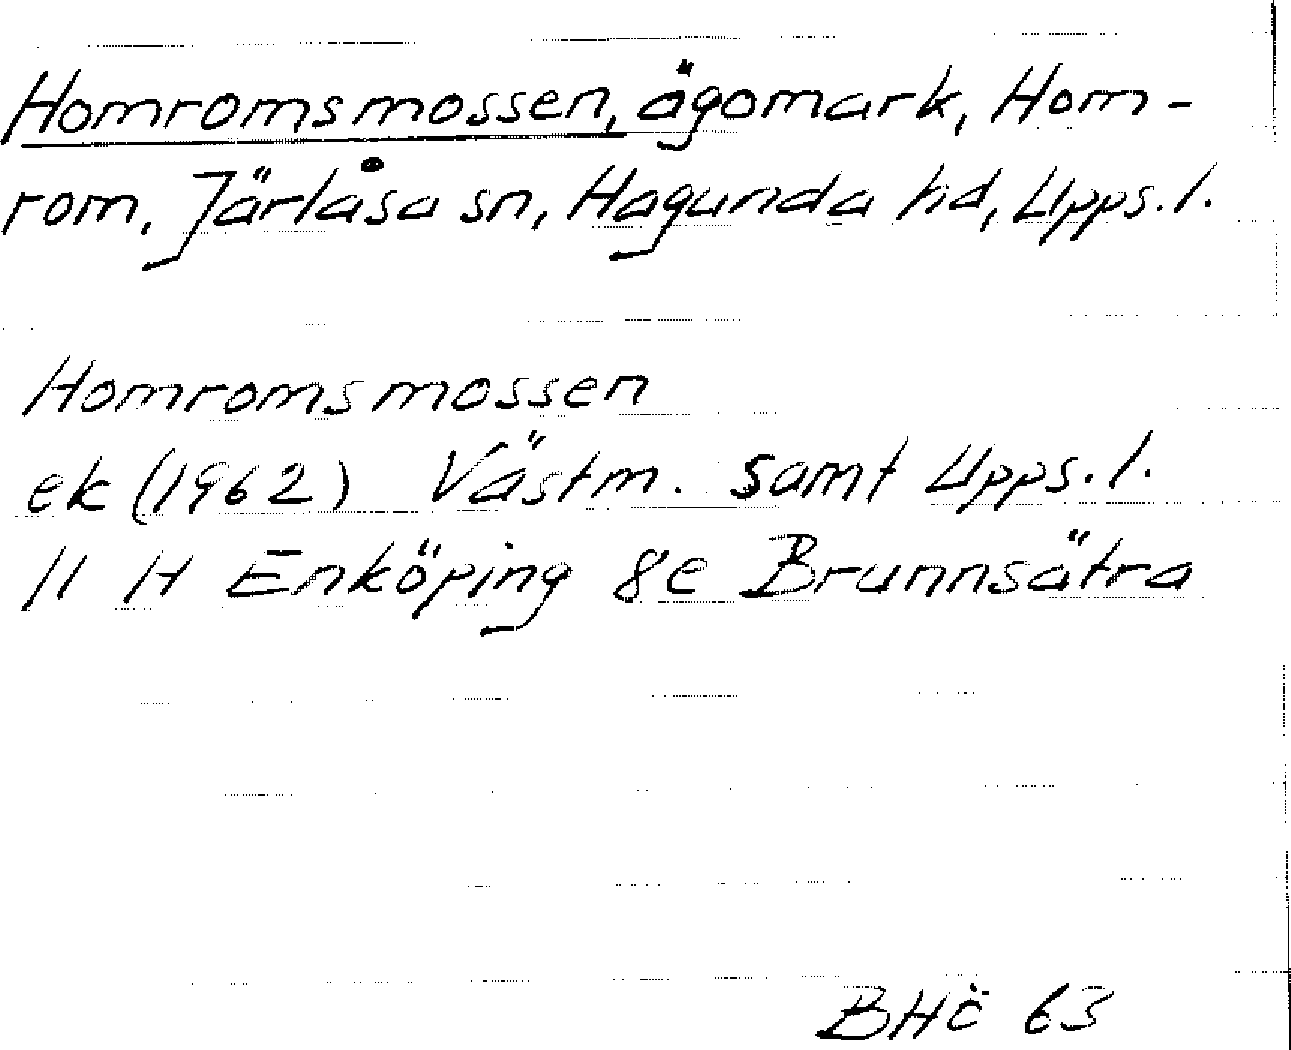 Homromsmossen, ägomark, Hom-
rom, Järlåsa sn, Hagunda hd, Upps. l.
Homromsmossen
ek (1962) Västm. samt Upps. l.
11 H Enköping 8e Brunnsätra
BHö 63